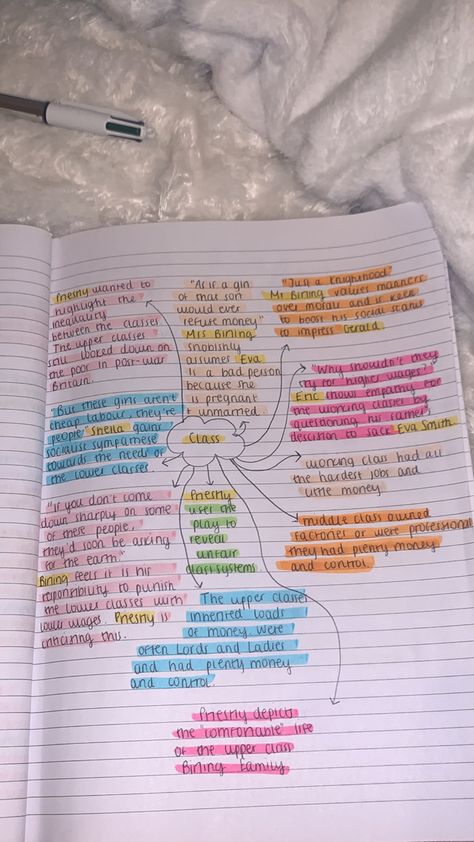 Priestly wanted to
highlight the
inequality
between the classes
The upper classes
still looked down on
the poor in post-war
Britain.
"As if a girl
of that sort
would ever
refuse money"
Mrs Birling
snobbishly
assumes Eva
is a bad person
because she
is pregnant
+ unmarried.
"Just a knighthood"
Mr Birling values manners
over morals and is keen
to boost his social status
to impress Gerald
"Why shouldn't they
try for higher wages?"
Eric shows empathy for
the working classes by
questioning his father's
decision to sack Eva Smith
"But these girls aren't
cheap labour, they're
people" Sheila gains
socialist sympathies
towards the needs of
the lower classes
Class
working class had all
the hardest jobs and
little money
"If you don't come
down sharply on some
of these people,
they'd soon be asking
for the earth."
Birling feels it is his
responsibility to punish
the lower classes with
lower wages. Priestly is
criticising this.
Priestly
uses the
play to
reveal
unfair
class systems
middle class owned
factories or were professional
they had plenty money
and control
The upper classes
inherited loads
of money were
often Lords and Ladies
and had plenty money
and control.
Priestly depicts
the "comfortable" life
of the upper class
Birling family